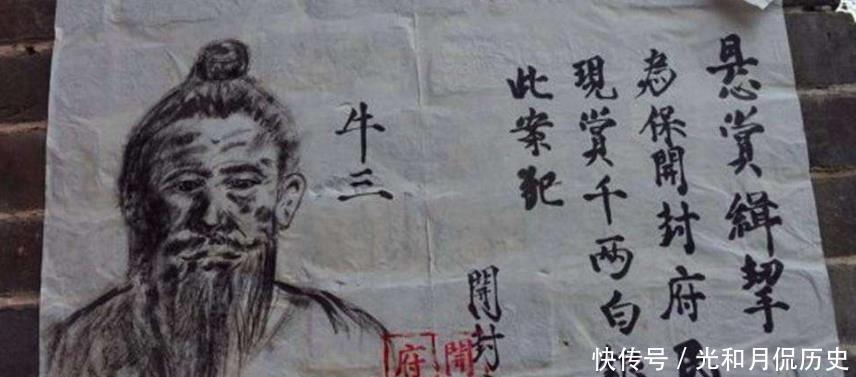 悬賞緝挈
為保開封府
現賞千两白
此案犯
牛三
開封
開
府
快传号 / 光和月侃历史